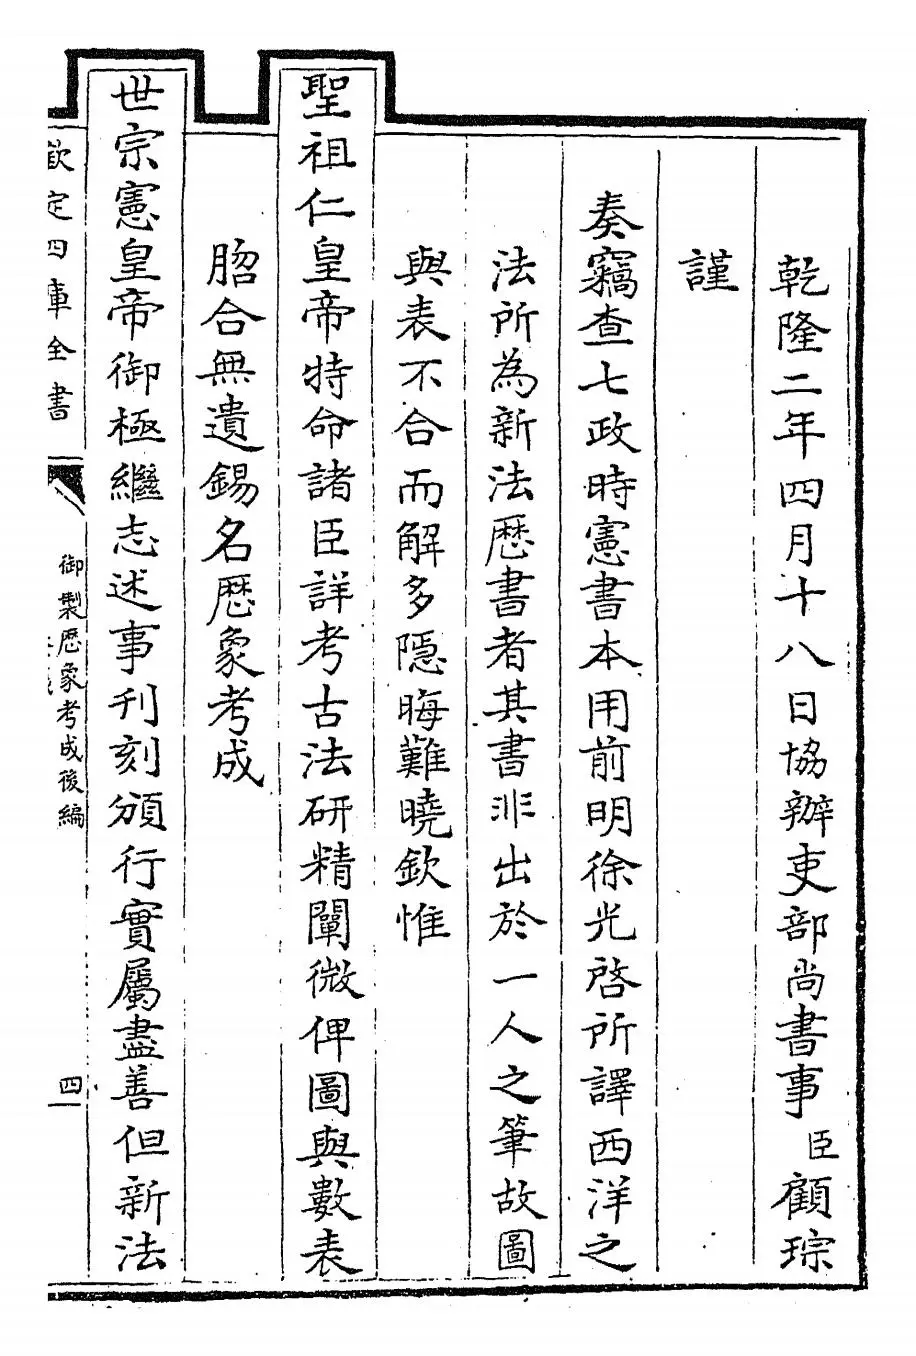 乾隆二年四月十八日協辦吏部尚書事臣顧琮
謹
奏竊查七政時憲書本用前明徐光啓所譯西洋之
法所為新法厯書者其書非出於一人之筆故圖
與表不合而解多隠晦難曉欽惟
聖祖仁皇帝特命諸臣詳考古法研精闡微俾圖與數表
脗合無遺錫名厯象考成
世宗憲皇帝御極繼志述事刊刻頒行實屬盡善但新法
欽定四庫全書
御製厯象考成後編
四